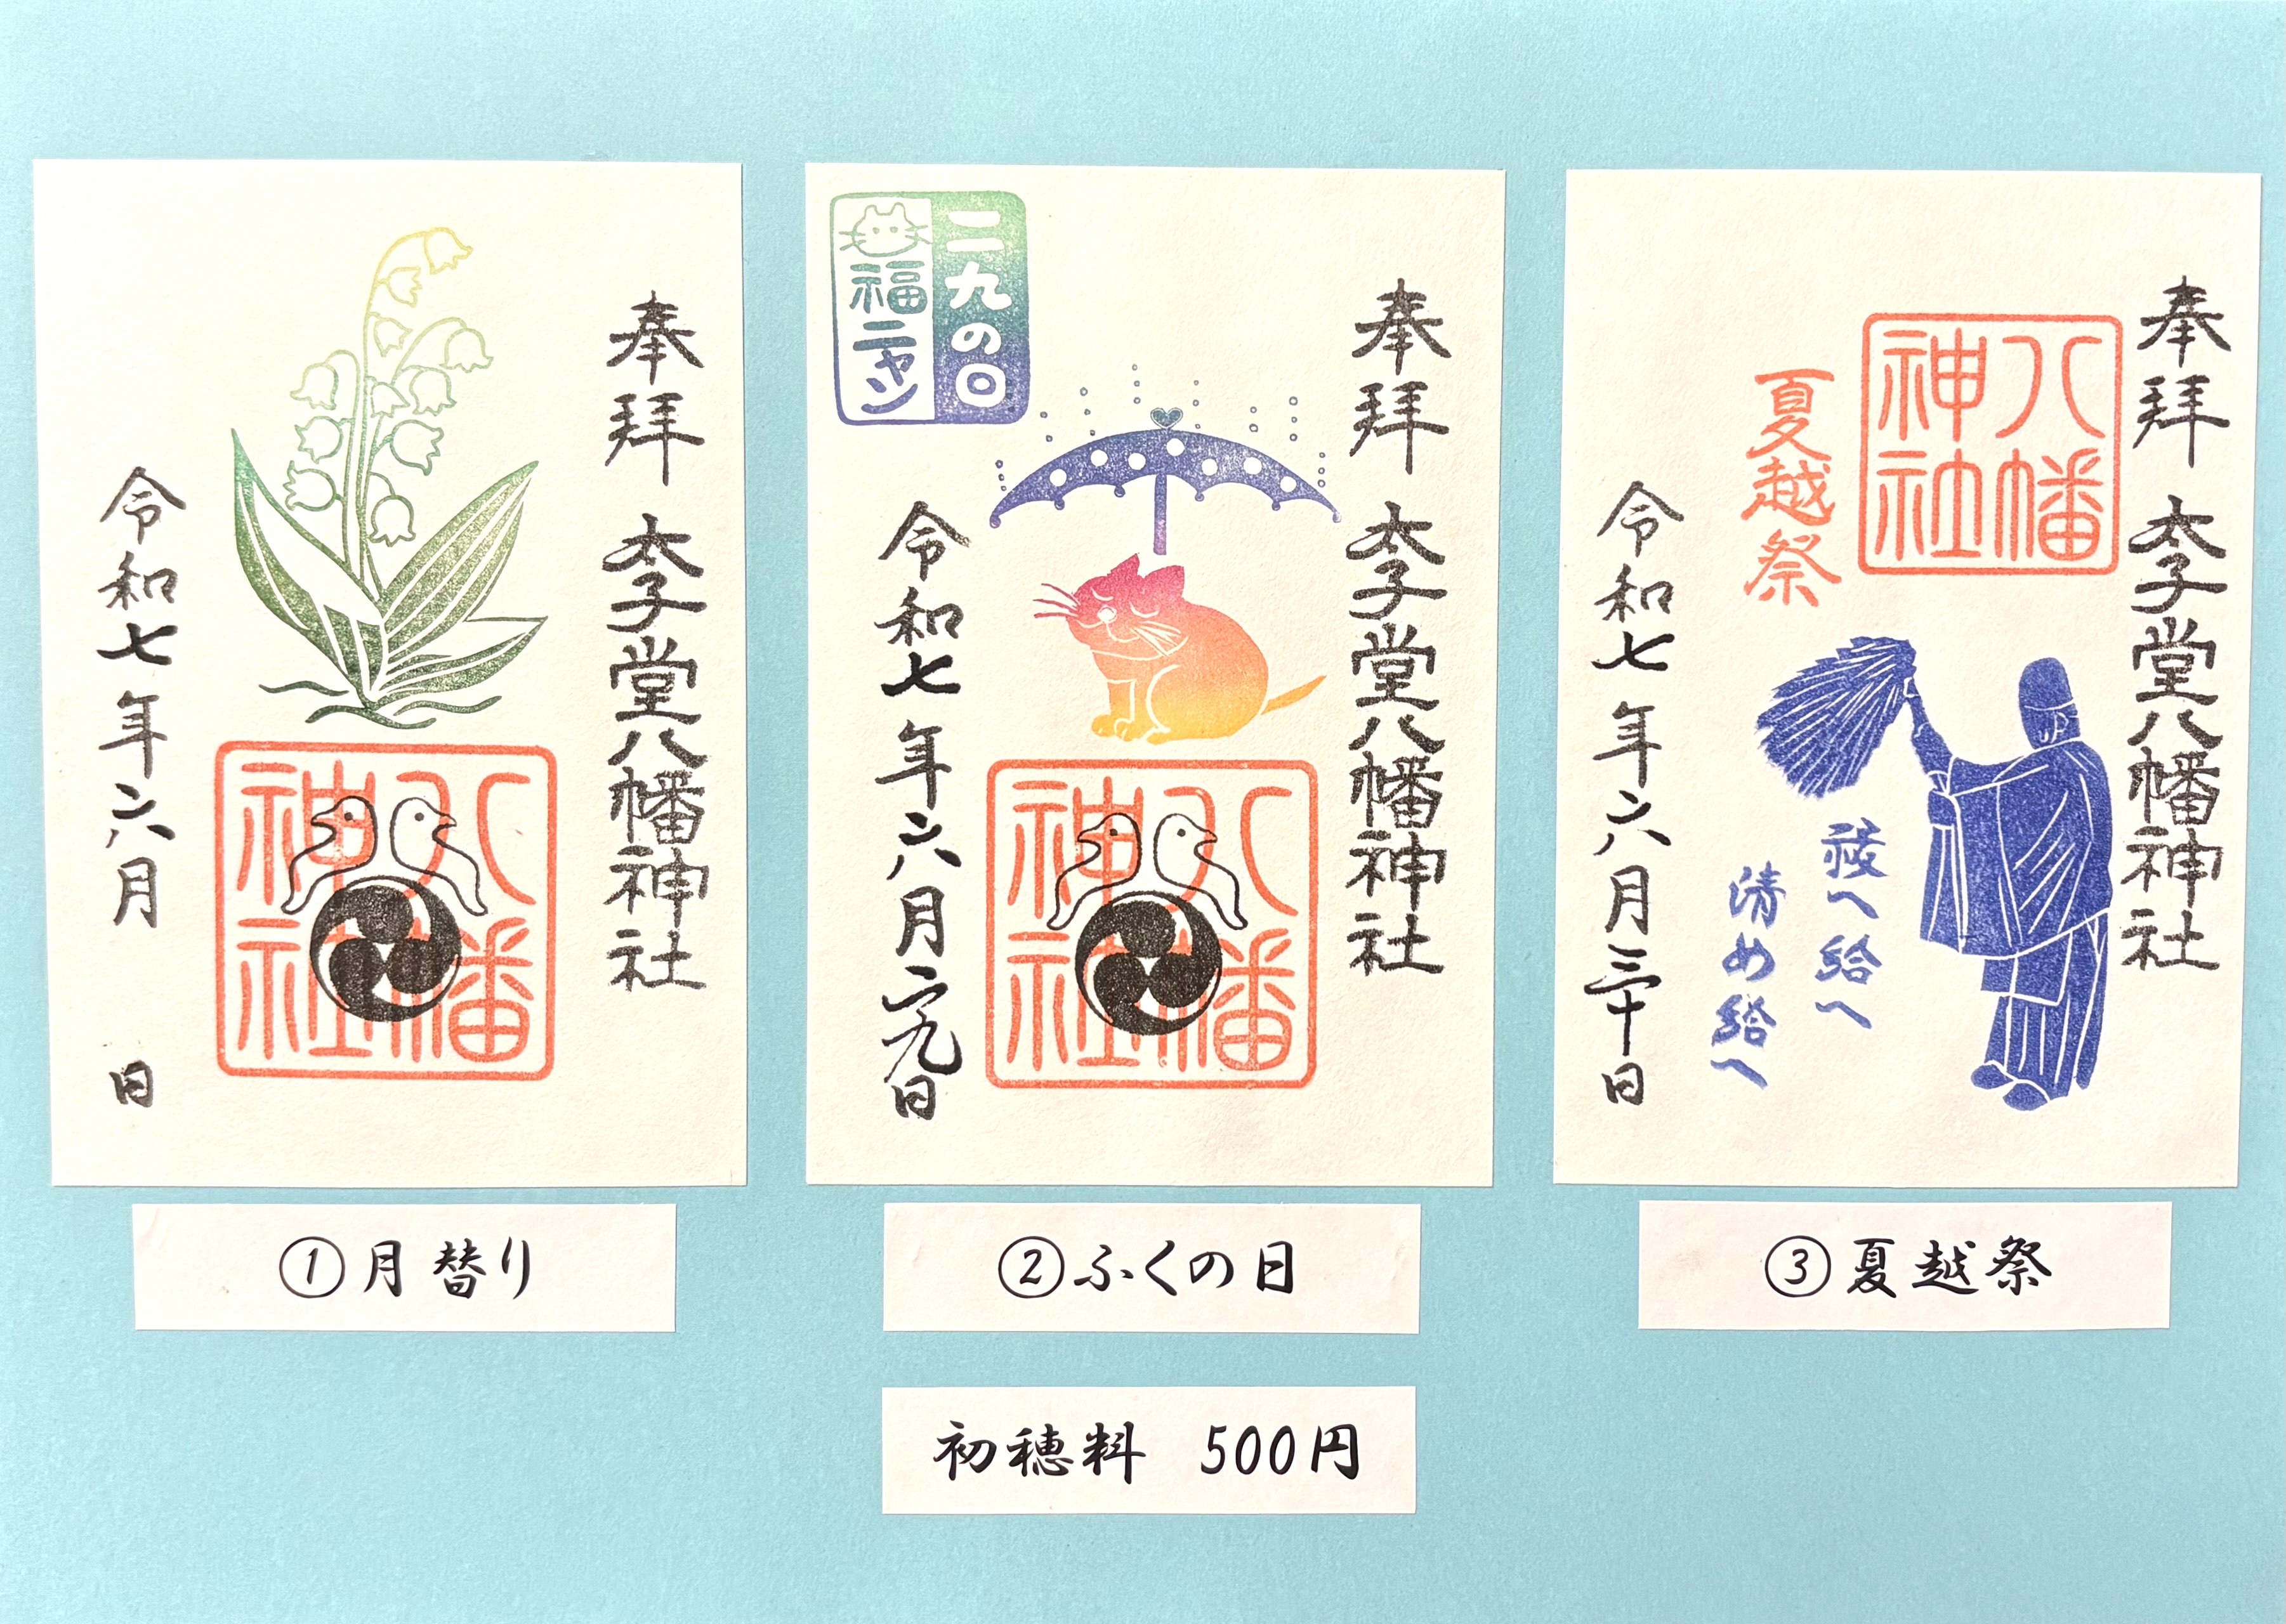 奉拝
太子堂八幡神社
八幡神社
令和七年六月 日
①月替り
二九の日
福ニャン
奉拝
太子堂八幡神社
八幡神社
令和七年六月二九日
②ふくの日
奉拝
太子堂八幡神社
八幡神社
夏越祭
祓へ給へ
清め給へ
令和七年六月三十日
③夏越祭
初穂料 500円